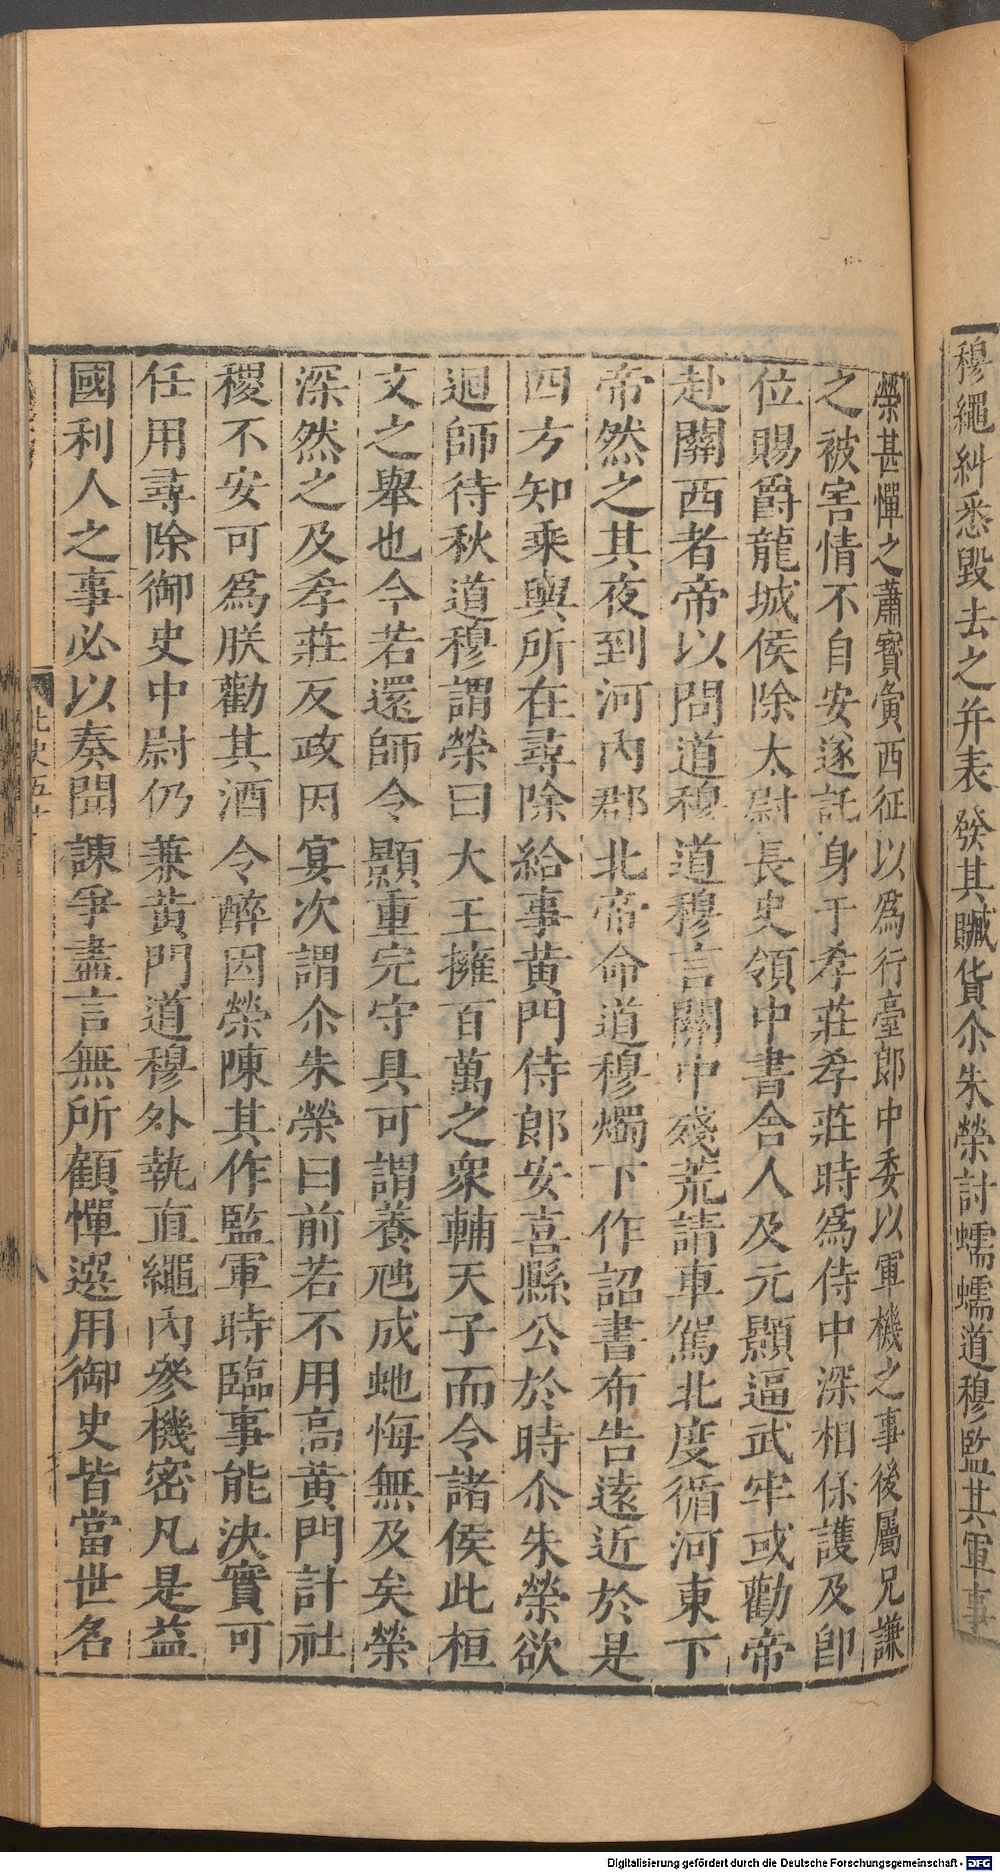 穆繩糾悉毀去之并表發其贓貨尒朱榮討蠕蠕道穆監其軍事
榮甚憚之蕭寶夤西征以爲行臺郎中委以軍機之事後屬兄謙
之被害情不自安遂託身于孝莊孝莊時爲侍中深相保護及卽
位賜爵龍城侯除太尉長史領中書舍人及元顥逼武牢或勸帝
赴關西者帝以問道穆道穆言關中殘荒請車駕北度循河東下
帝然之其夜到河內郡北帝命道穆燭下作詔書布告遠近於是
四方知乘輿所在尋除給事黃門侍郎安喜縣公於時尒朱榮欲
迴師待秋道穆謂榮曰大王擁百萬之衆輔天子而令諸侯此桓
文之舉也今若還師令顥重完守具可謂養虺成虵悔無及矣榮
深然之及孝莊反政因宴次謂尒朱榮曰前若不用高黃門計社
稷不安可爲朕勸其酒令醉因榮陳其作監軍時臨事能決實可
任用尋除御史中尉仍兼黃門道穆外執直繩內參機密凡是益
國利人之事必以奏聞諫爭盡言無所顧憚選用御史皆當世名
北史五十
八
Digitalisierung gefördert durch die Deutsche Forschungsgemeinschaft - DFG